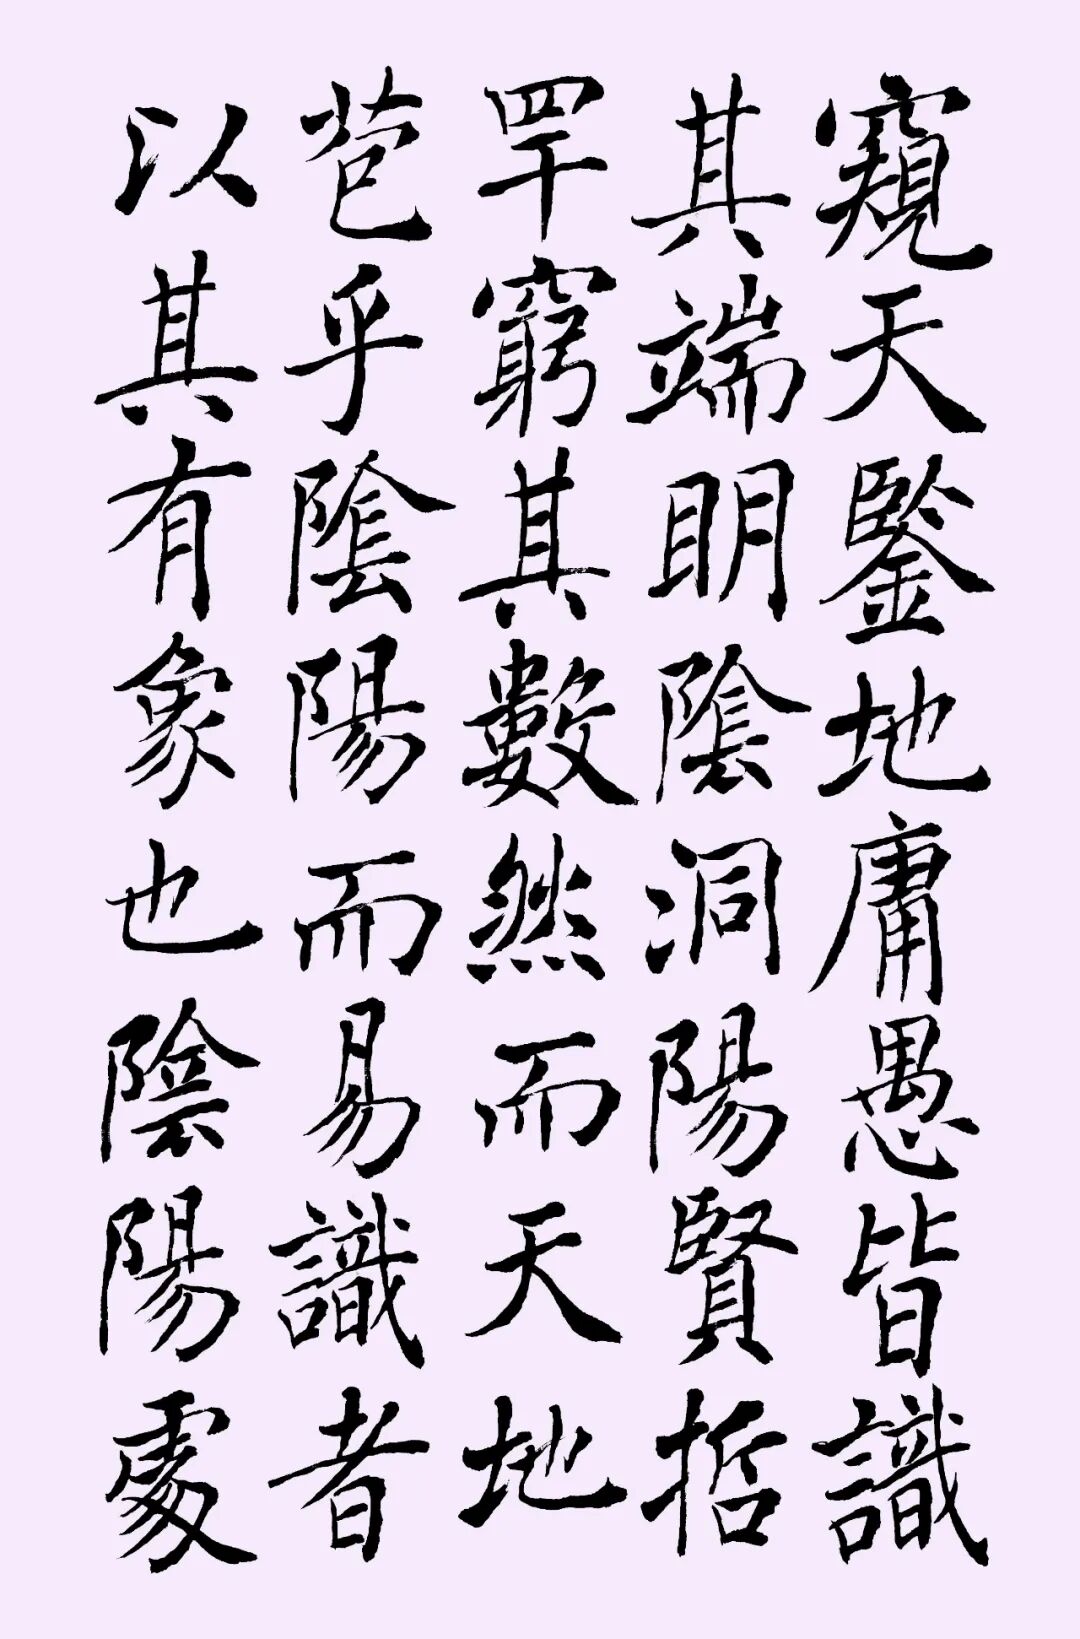 窺天鑒地庸愚皆識
其端明陰洞陽賢哲
罕窮其數然而天地
苞乎陰陽而易識者
以其有象也陰陽處